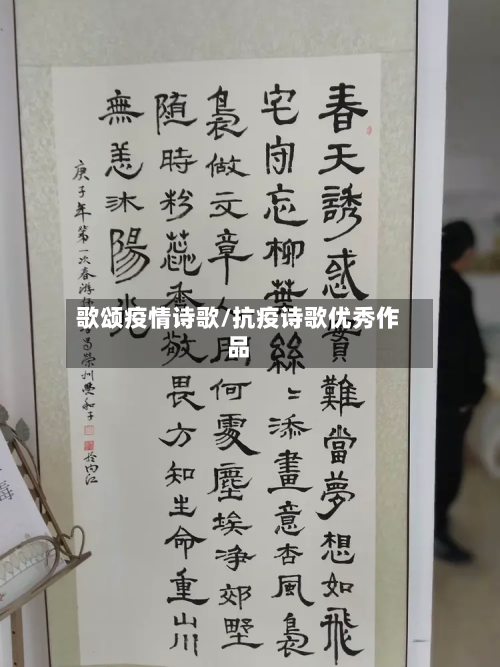 春天誘惑實難當夢想如飛
宅守忘柳葉絲絲添畫意杏風裊
裊做文章人間何處塵埃淨郊墅
隨時粉蕊香敬畏方知生命重山川
無恙沐陽光
庚子年第一次春游
榮州
於內江
歌颂疫情诗歌/抗疫诗歌优秀作
品